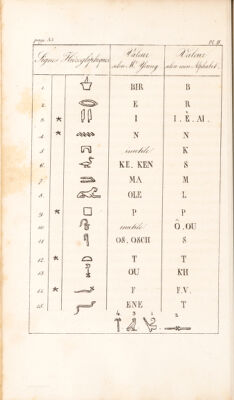 page 45. Pl. II.
Signes Hiéroglyphiques Valeur selon M. Young Valeur selon mon Alphabet.
1. BIR B
2. E R
3. * I I . È . AI .
4. * N N
5. inutile K
6. KE . KEN S
7. MA M
8. OLE L
9. * P P
10. inutile Ô . OU
11. OS . OSCH S
12. * T T
13. OU KH
14. * F F.V.
15. ENE T
4 3 1 2